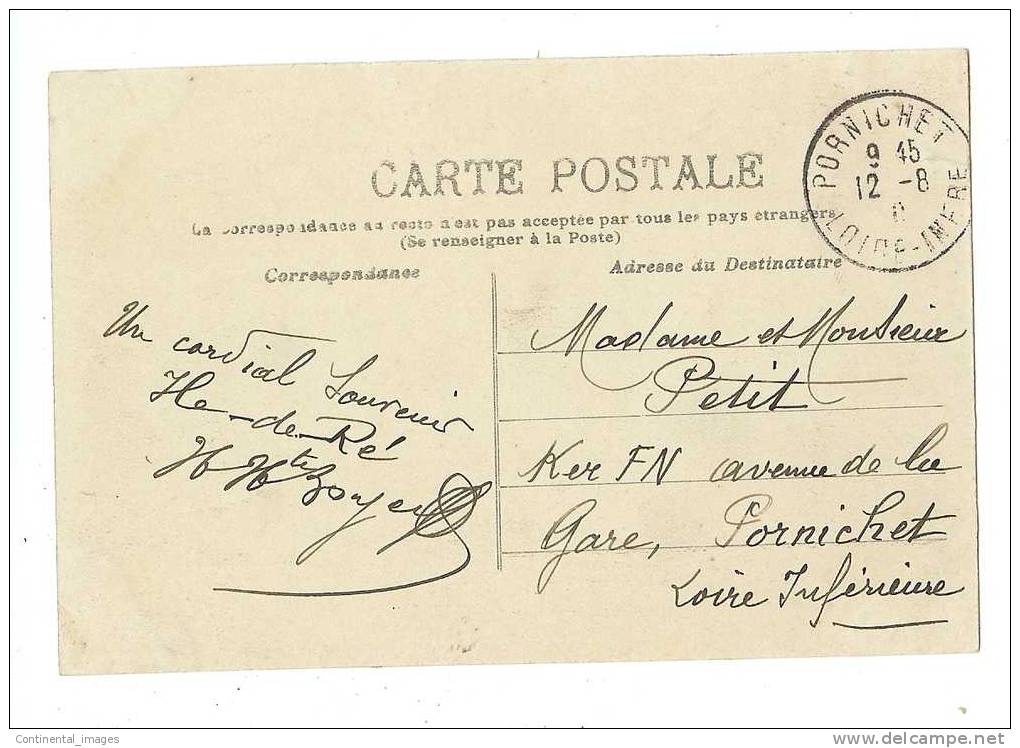 CARTE POSTALE
La correspondance au recto n'est pas acceptée par tous les pays étrangers
(Se renseigner à la Poste)
Correspondance
Un cordial Souvenir
Ile-de-Ré
Adresse du Destinataire
Madame et Monsieur
Petit
Ker FN avenue de la
Gare, Pornichet
Loire Inférieure
PORNICHET
9 45
12 -8
LOIRE-INFRE
Continental_images
delcampe.net